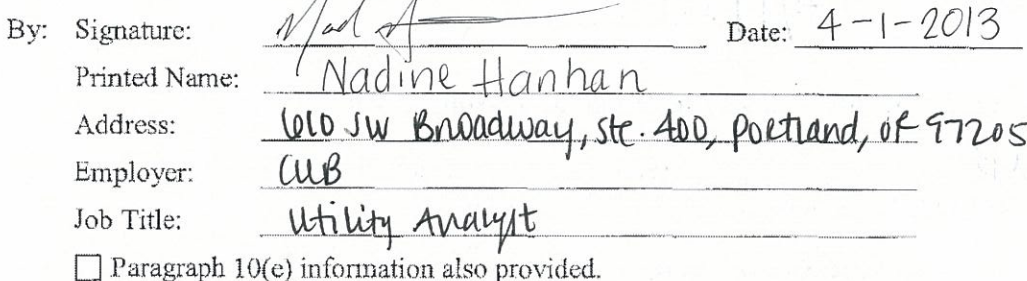 By: Signature: Date: 4-1-2013
Printed Name: Nadine Hanhan
Address: 610 SW Broadway, Ste. 400, Portland, OR 97205
Employer: CUB
Job Title: Utility Analyst
☐ Paragraph 10(e) information also provided.